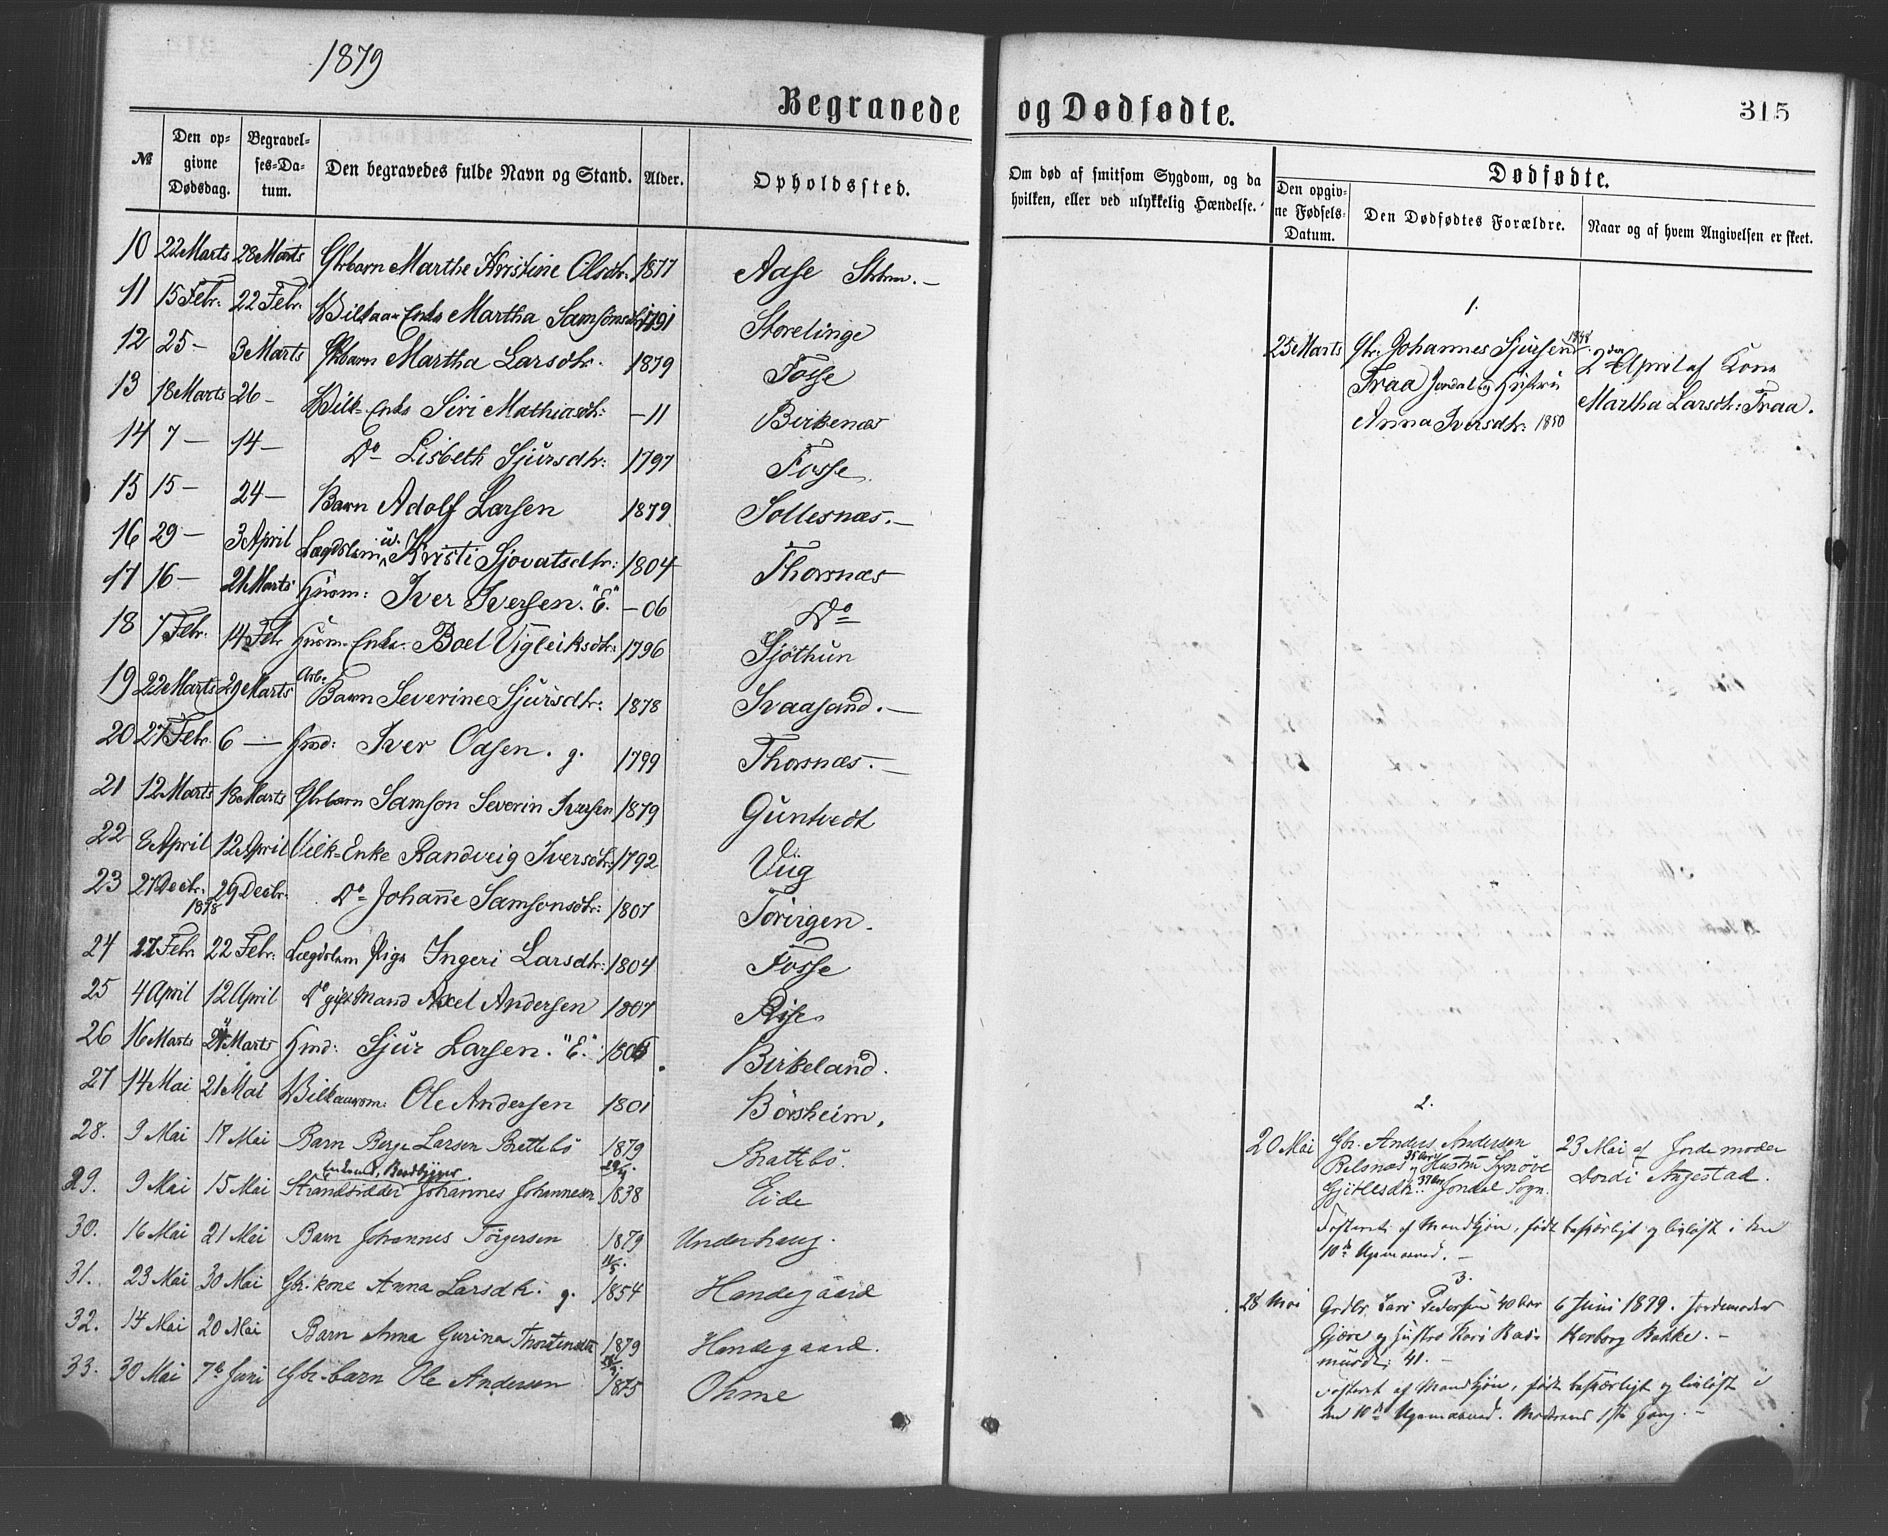 1879
Begravede og Dødfødte.
315
№ Den opgivne Dødsdag. Begravelses-Datum. Den begravedes fulde Navn og Stand. Alder. Opholdssted.
Om død af smitsom Sygdom, og da hvilken, eller ved ulykkelig Hændelse.
Dødfødte.
Den opgivne Fødsels-Datum. Den Dødfødtes Forældre. Naar og af hvem Angivelsen er skeet.
10 22 Marts 28 Marts Gbrbarn Marthe Kristine Olsdtr. 1877 Aase
11 15 Febr. 22 Febr. Vilkaar Enke Martha Samsonsdtr 1791 Storelinge
12 25 – 3 Marts Gbrbarn Martha Larsdtr. 1879 Fosse
13 18 Marts 26 – Vilk- Enke Siri Mathiasdtr: – 11 Birkenæs
14 7 – 14 – Do Lisbeth Sjursdtr: 1797 Fosse
15 15 – 24 – Barn Adolf Larsen 1879 Sollesnæs. –
16 29 – 3 April Lægdslem u. Kristi Sjovatsdtr: 1804 Thorsnæs
17 16 – 21 Marts Husm: Iver Iversen. "E." – 06 Do
18 7 Febr. 14 Febr Husm- Enke. Boel Vigleiksdtr: 1796 Sjøthun
19 22 Marts 29 Marts Arb. Barn Severine Sjursdtr: 1878 Svaasand. –
20 27 Febr. 6 – Hmd: Iver Oasen. g. 1799 Thorsnæs. –
21 12 Marts 18 Marts Gbrbarn Samson Severin Iversen 1879 Guntvedt
22 8 April 12 April Vilk- Enke Randveig Iversdtr: 1792 Viig
23 27 Decbr. 1878 29 Decbr. Do Johanne Samsonsdtr: 1807 Torirgen.
24 17 Febr. 22 Febr. Lægdslem Pige Ingeri Larsdtr: 1804 Fosse
25 4 April 12 April Do gift Mand Axel Andersen 1807 Rise
26 16 Marts 21 Marts Hmd: Sjur Larsen. "E." Birkeland.
27 14 Mai 21 Mai Vilkaarsm: Ole Andersen 1801 Børsheim.
28. 9 Mai 17 Mai Barn Berge Larsen Brettebø 1879 Brattebø.
29. 9 Mai 15 Mai Enkemd, Strandsidder Johannes Johannesen 1838 Eide
30. 16 Mai 21 Mai Barn Johannes Torgersen 1879 Underhaug.
31. 23 Mai 30 Mai Gbr. kone Anna Larsdtr. g. 1854 Handegaard
32. 14 Mai 20 Mai Barn Anna Gurina Thorstensdtr 1879 Handegaard.
33. 30 Mai 7de Juni Gbr. barn Ole Andersen 1875 Ohme
1.
25 Marts Gbr. Johannes Sjursen 1848
Fraa Jondal og Hustru
Anna Iversdtr: 1850
2den April af Kone
Martha Larsdtr: Fraa.
2.
20 Mai Gbr. Anders Andersen
35 Aar og Hustru Synøve
Jondal Sogn.
23 Mai af Jordemoder
Dordi Angestad.
Fosteret af Mandkjøn, født ufuldbaaret og livløst i den
10de Ugemaaned. –
3.
28 Mai Grdbr. Lars Pedersen 40 Aar
Gjøre og Hustru Kari Ras-
musdtr: 41. –
6 Juni 1879. Jordemoder
Herborg Bakke. –
Fosteret af Mandkjøn, født og livløst i
den 10de Ugemaaned. 1ste Gang. –